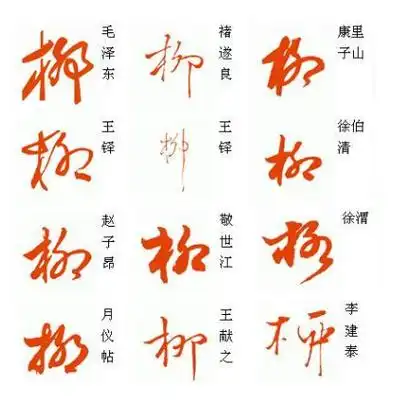 柳
毛泽东
柳
褚遂良
柳
康里
子山
柳
王铎
柳
王铎
柳
徐伯
清
柳
赵子昂
柳
敬世江
柳
徐渭
柳
月仪帖
柳
王献之
柳
李建泰